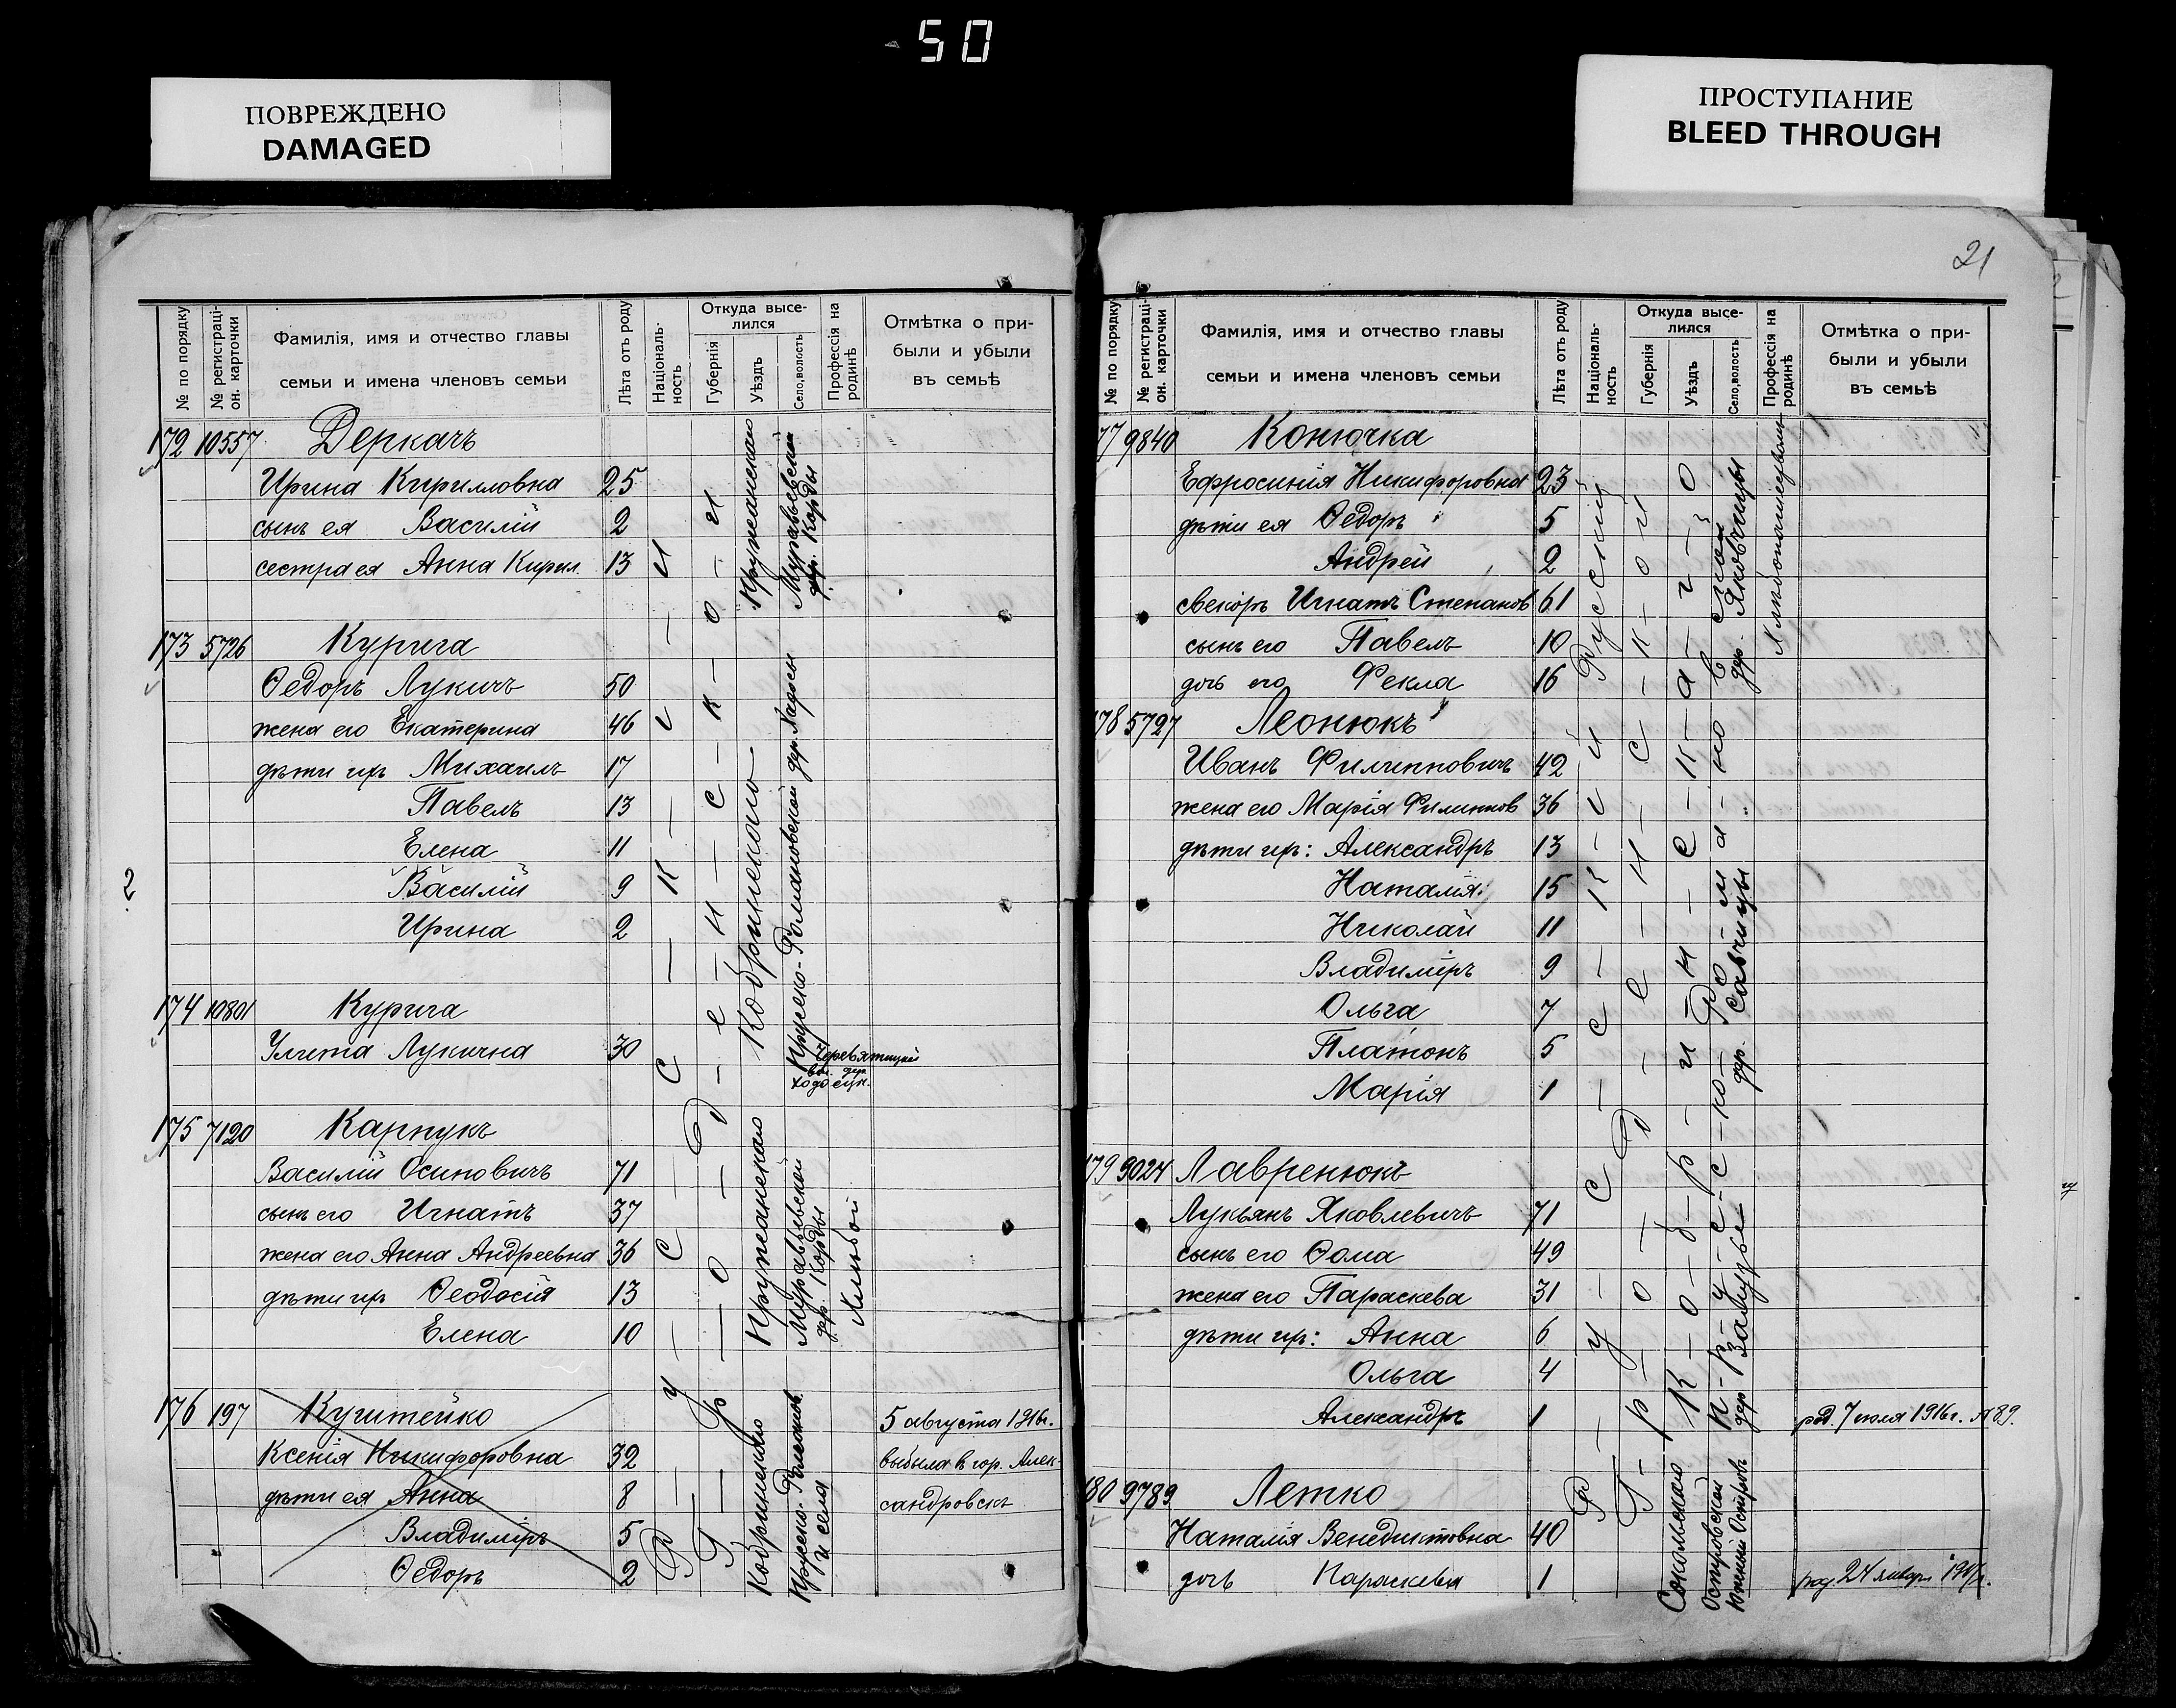 50
ПОВРЕЖДЕНО
DAMAGED
ПРОСТУПАНИЕ
BLEED THROUGH
№ по порядку
№ регистраці-
он. карточки
Фамилія, имя и отчество главы
семьи и имена членовъ семьи
Лѣта отъ роду
Національ-
ность
Откуда высе-
лился
Губернія
Уѣздъ
Село, волость
Профессія на
родинѣ
Отмѣтка о при-
были и убыли
въ семьѣ
172 10557 Деркачъ
Ирина Кирилловна 25
сынъ ея Василій 2
сестра ея Анна Кирил. 13
Пружанскаго
Муравьевской
дер. Корды
173 5726 Курига
Ѳедоръ Лукичъ 50
жена его Екатерина 46
дѣти ихъ Михаилъ 17
Павелъ 13
Елена 11
Василій 9
Ирина 2
Кобринскаго
174 10801 Курига
Улита Лукична 30
175 7120 Карпукъ
Василій Осиповичъ 71
сынъ его Игнатъ 37
жена его Анна Андреевна 36
дѣти ихъ Ѳеодосія 13
Елена 10
Пружанскаго
Муравьевской
дер. Корды
176 197 Куштейко
Ксенія Никифоровна 32
дѣти ея Анна 8
Владиміръ 5
Ѳедоръ 2
Русскій
Гродненской
Кобринскаго
и села
5 августа 1916г.
выбыла в гор. Алек-
сандровскъ
2
21
№ по порядку
№ регистраці-
он. карточки
Фамилія, имя и отчество главы
семьи и имена членовъ семьи
Лѣта отъ роду
Національ-
ность
Откуда высе-
лился
Губернія
Уѣздъ
Село, волость
Профессія на
родинѣ
Отмѣтка о при-
были и убыли
въ семьѣ
77 9840 Конючка
Ефросинія Никифоровна 23
дѣти ея Ѳедоръ 5
Андрей 2
свекоръ Игнатъ Степанов 61
сынъ его Павелъ 10
дочь его Фекла 16
Русскій
дер. Яковчицы
78 5797 Леонюкъ
Иванъ Филипповичъ 42
жена его Марія Филиппов 36
дѣти ихъ: Александръ 13
Наталія 15
Николай 11
Владиміръ 9
Ольга 7
Платонъ 5
Марія 1
дер. Савчицы
79 9024 Лавренюкъ
Лукьянъ Яковлевичъ 71
сынъ его Ѳома 49
жена его Параскева 31
дѣти ихъ: Анна 6
Ольга 4
Александръ 1
Русскій
Гродненской
Кобринскаго
дер. Залузье
род. 7 июля 1916г. № 89.
80 9789 Летко
Наталія Венедиктовна 40
дочь Параскева 1
Сокольскаго
Островской
Южный Островъ
род. 24 января